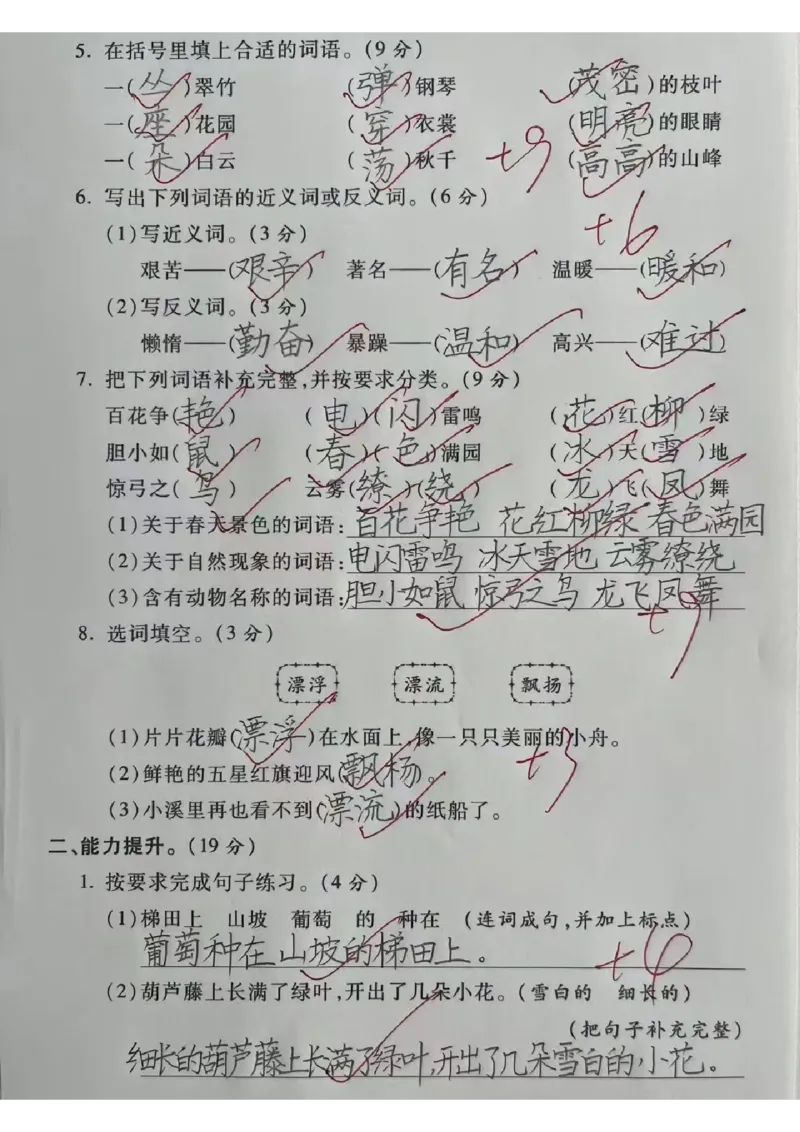 5. 在括号里填上合适的词语。(9分)
一(丛)翠竹 (弹)钢琴 (茂密)的枝叶
一(座)花园 (穿)衣裳 (明亮)的眼睛
一(朵)白云 (荡)秋千 +9 (高高)的山峰
6. 写出下列词语的近义词或反义词。(6分)
(1)写近义词。(3分) +6
艰苦——(艰辛) 著名——(有名) 温暖——(暖和)
(2)写反义词。(3分)
懒惰——(勤奋) 暴躁——(温和) 高兴——(难过)
7. 把下列词语补充完整,并按要求分类。(9分)
百花争(艳) (电)(闪)雷鸣 (花)红(柳)绿
胆小如(鼠) (春)(色)满园 (冰)天(雪)地
惊弓之(鸟) 云雾(缭)(绕) (龙)飞(凤)舞
(1)关于春天景色的词语:百花争艳 花红柳绿 春色满园
(2)关于自然现象的词语:电闪雷鸣 冰天雪地 云雾缭绕
(3)含有动物名称的词语:胆小如鼠 惊弓之鸟 龙飞凤舞
+9
8. 选词填空。(3分)
漂浮 漂流 飘扬
(1)片片花瓣(漂浮)在水面上,像一只只美丽的小舟。
(2)鲜艳的五星红旗迎风(飘杨)。 +3
(3)小溪里再也看不到(漂流)的纸船了。
二、能力提升。(19分)
1. 按要求完成句子练习。(4分)
(1)梯田上 山坡 葡萄 的 种在 (连词成句,并加上标点)
葡萄种在山坡的梯田上。 +4
(2)葫芦藤上长满了绿叶,开出了几朵小花。(雪白的 细长的)
(把句子补充完整)
细长的葫芦藤上长满了绿叶,开出了几朵雪白的小花。